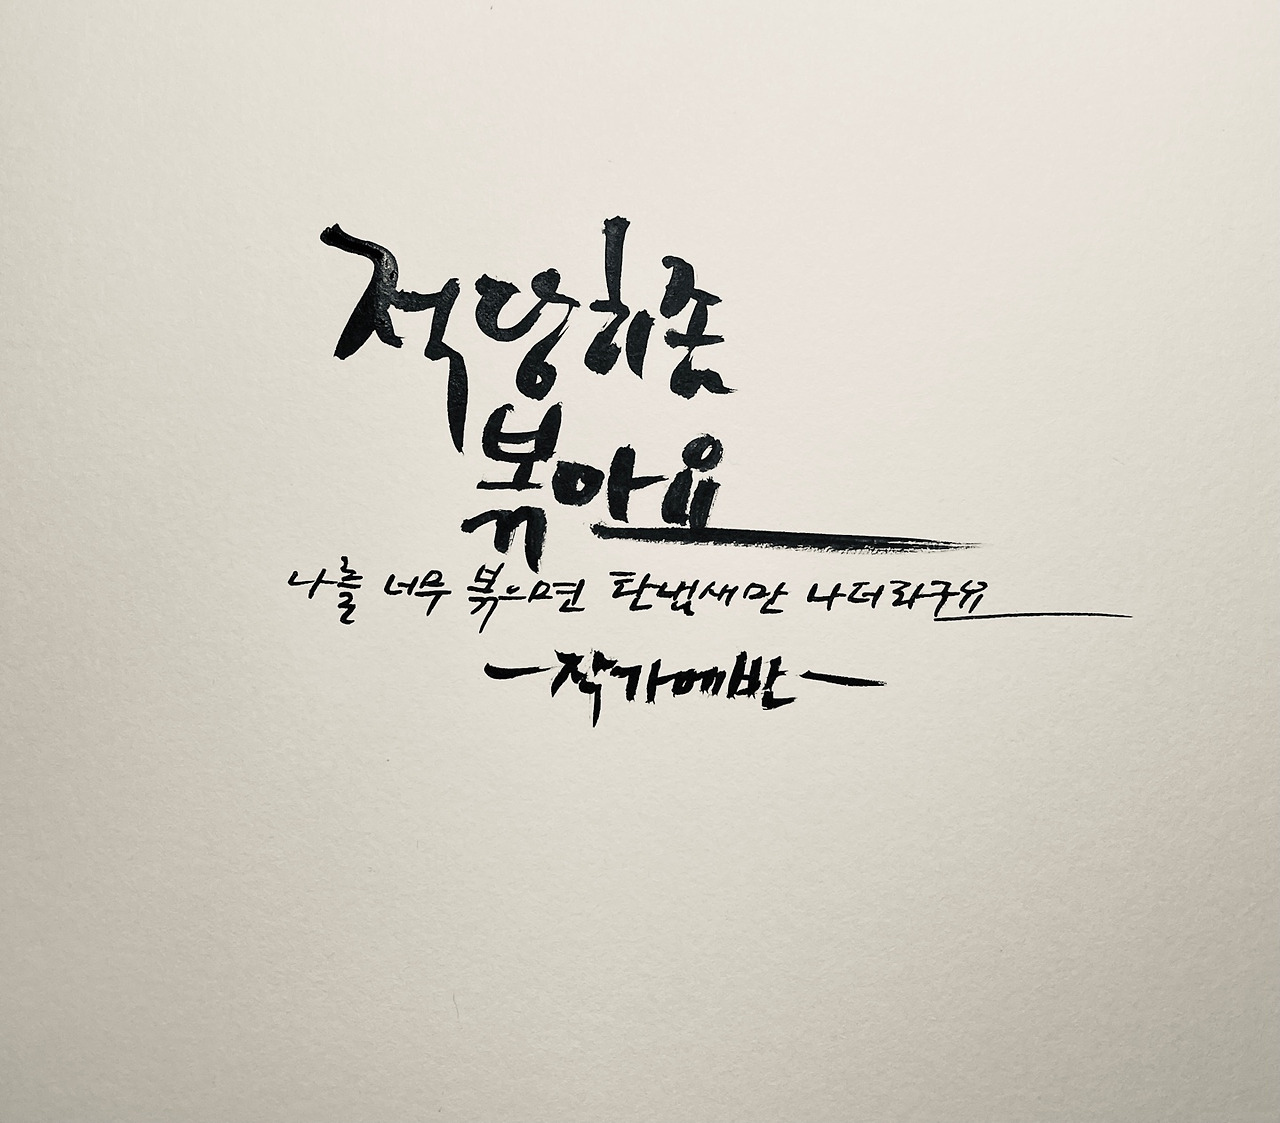 적당히좀
볶아요
나를 너무 볶으면 탄냄새만 나더라구유
-작가에반-